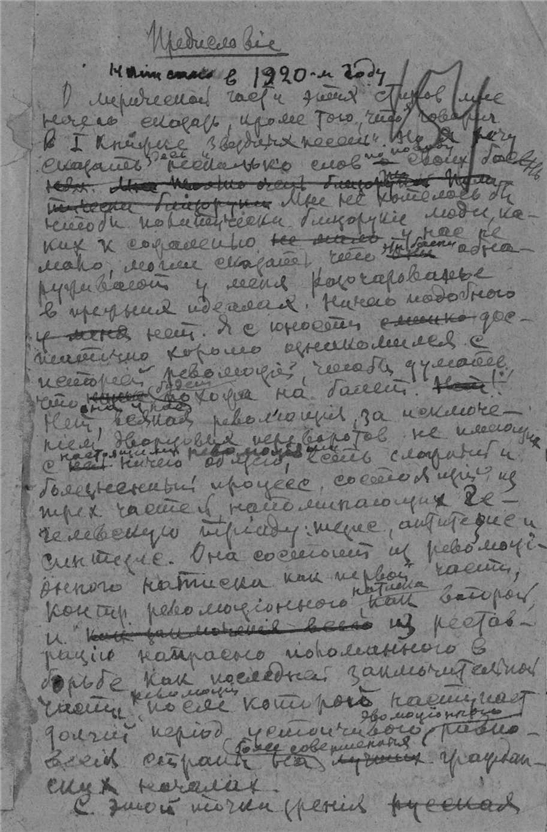 Предисловіе
Написано в 1920-м году
О лирической части этих стихов мне
нечего сказать кроме того, что говорил
в I книжке "Звездных песен". Но я хочу
сказать здесь несколько слов по поводу своих басень
Мне не хотелось бы
чтобы политически близорукие люди, ка-
ких к сожалению, не мало у нас не
мало, могли сказать что басни обна-
руживают у меня разочарованье
в прежних идеалах. Ничего подобного
у меня нет. Я с юности дос-
таточно хорошо ознакомился с
исторіей революцій, чтобы думать
что она у нас будет похожа на балет.
Нет, всякая революція, за исключе-
ніем дворцовых переворотов не имеющих
с настоящими революціями ничего общаго, есть сложный и
болезненный процесс, состоящій из
трех частей, напоминающих Ге-
гелевскую тріаду: тезис, антитезис и
синтезис. Она состоит из революці-
оннаго натиска как первой части,
контр революціоннаго натиска, как второй,
и как заключенія всего из рестав-
раціи напрасно поломаннаго в
борьбе как последней заключительной
части революціи, после которой наступает
долгій період устойчиваго эволюціоннаго равно-
весія страны на более совершенных лучших граждан-
ских началах.
С этой точки зренія русская